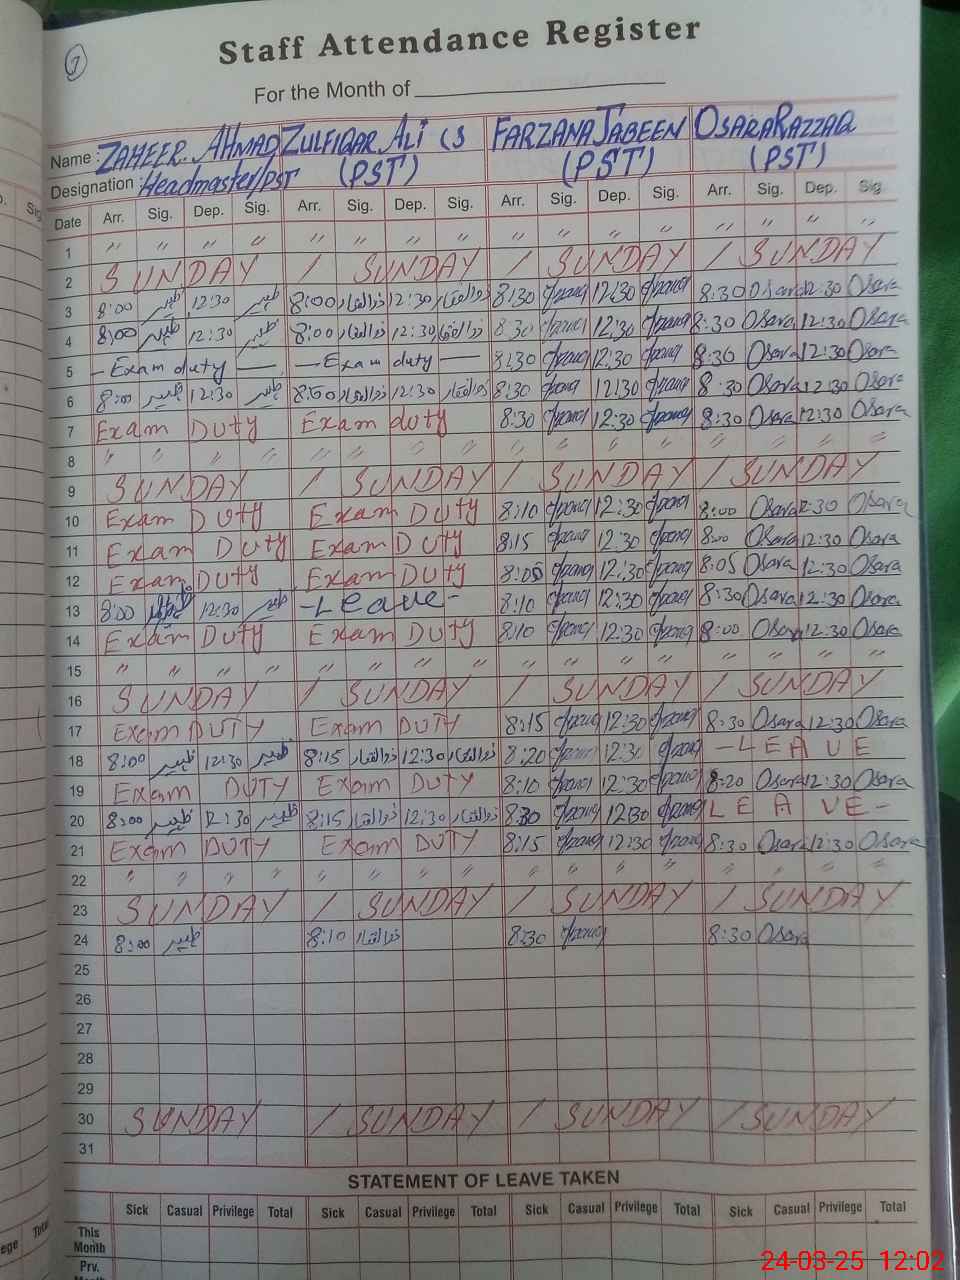 7
Staff Attendance Register
For the Month of
Name : ZAHEER AHMAD ZULFIQAR ALI (S FARZANA JABEEN OSARA RAZZAQ
Designation : Headmaster/PST (PST) (PST) (PST)
Date Arr. Sig. Dep. Sig. Arr. Sig. Dep. Sig. Arr. Sig. Dep. Sig. Arr. Sig. Dep. Sig.
1 " " " " " " " " " " " " " " " "
2 SUNDAY / SUNDAY / SUNDAY / SUNDAY
3 8:00 ظہیر 12:30 ظہیر 8:00 ذوالفقار 12:30 ذوالفقار 8:30 12:30 8:30 Osara 12:30 Osara
4 8:00 ظہیر 12:30 ظہیر 8:00 ذوالفقار 12:30 ذوالفقار 8:30 12:30 8:30 Osara 12:30 Osara
5 - Exam duty — — Exam duty — 8:30 12:30 8:30 Osara 12:30 Osara
6 8:00 ظہیر 12:30 ظہیر 8:00 ذوالفقار 12:30 ذوالفقار 8:30 12:30 8:30 Osara 12:30 Osara
7 Exam DUTY Exam duty 8:30 12:30 8:30 Osara 12:30 Osara
8 " " " " " " " " " " " " " " " "
9 SUNDAY / SUNDAY / SUNDAY / SUNDAY
10 Exam DUTY Exam DUTY 8:10 12:30 8:00 Osara 12:30 Osara
11 Exam DUTY Exam DUTY 8:15 12:30 8:00 Osara 12:30 Osara
12 Exam DUTY Exam DUTY 8:05 12:30 8:05 Osara 12:30 Osara
13 8:00 ظہیر 12:30 ظہیر - Leave - 8:10 12:30 8:30 Osara 12:30 Osara
14 Exam DUTY Exam DUTY 8:10 12:30 8:00 Osara 12:30 Osara
15 " " " " " " " " " " " " " " " "
16 SUNDAY / SUNDAY / SUNDAY / SUNDAY
17 Exam DUTY Exam DUTY 8:15 12:30 8:30 Osara 12:30 Osara
18 8:00 ظہیر 12:30 ظہیر 8:15 ذوالفقار 12:30 ذوالفقار 8:20 12:30 - LEAVE
19 Exam DUTY Exam DUTY 8:10 12:30 8:20 Osara 12:30 Osara
20 8:00 ظہیر 12:30 ظہیر 8:15 ذوالفقار 12:30 ذوالفقار 8:30 12:30 LEAVE -
21 Exam DUTY Exam DUTY 8:15 12:30 8:30 Osara 12:30 Osara
22 " " " " " " " " " " " " " " " "
23 SUNDAY / SUNDAY / SUNDAY / SUNDAY
24 8:00 ظہیر 8:10 ذوالفقار 8:30 8:30 Osara
25
26
27
28
29
30 SUNDAY / SUNDAY / SUNDAY / SUNDAY
31
STATEMENT OF LEAVE TAKEN
Sick Casual Privilege Total Sick Casual Privilege Total Sick Casual Privilege Total Sick Casual Privilege Total
This Month
Prv.
24-03-25 12:02